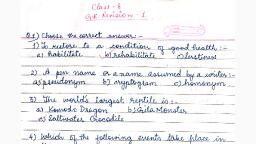 Class - 6
G.K Revision - 1
Q.1) Choose the correct answer :-
1) To restore to a condition of good health :-
a) habilitate b) rehabilitate c) lerstiness
2) A pen name or a name assumed by a writer :-
a) pseudonym b) cryptogram c) homonym
3) The world's largest reptile is :-
a) Komodo Dragon b) Gila Monster
c) Saltwater Crocodile
4) Which of the following events take place in